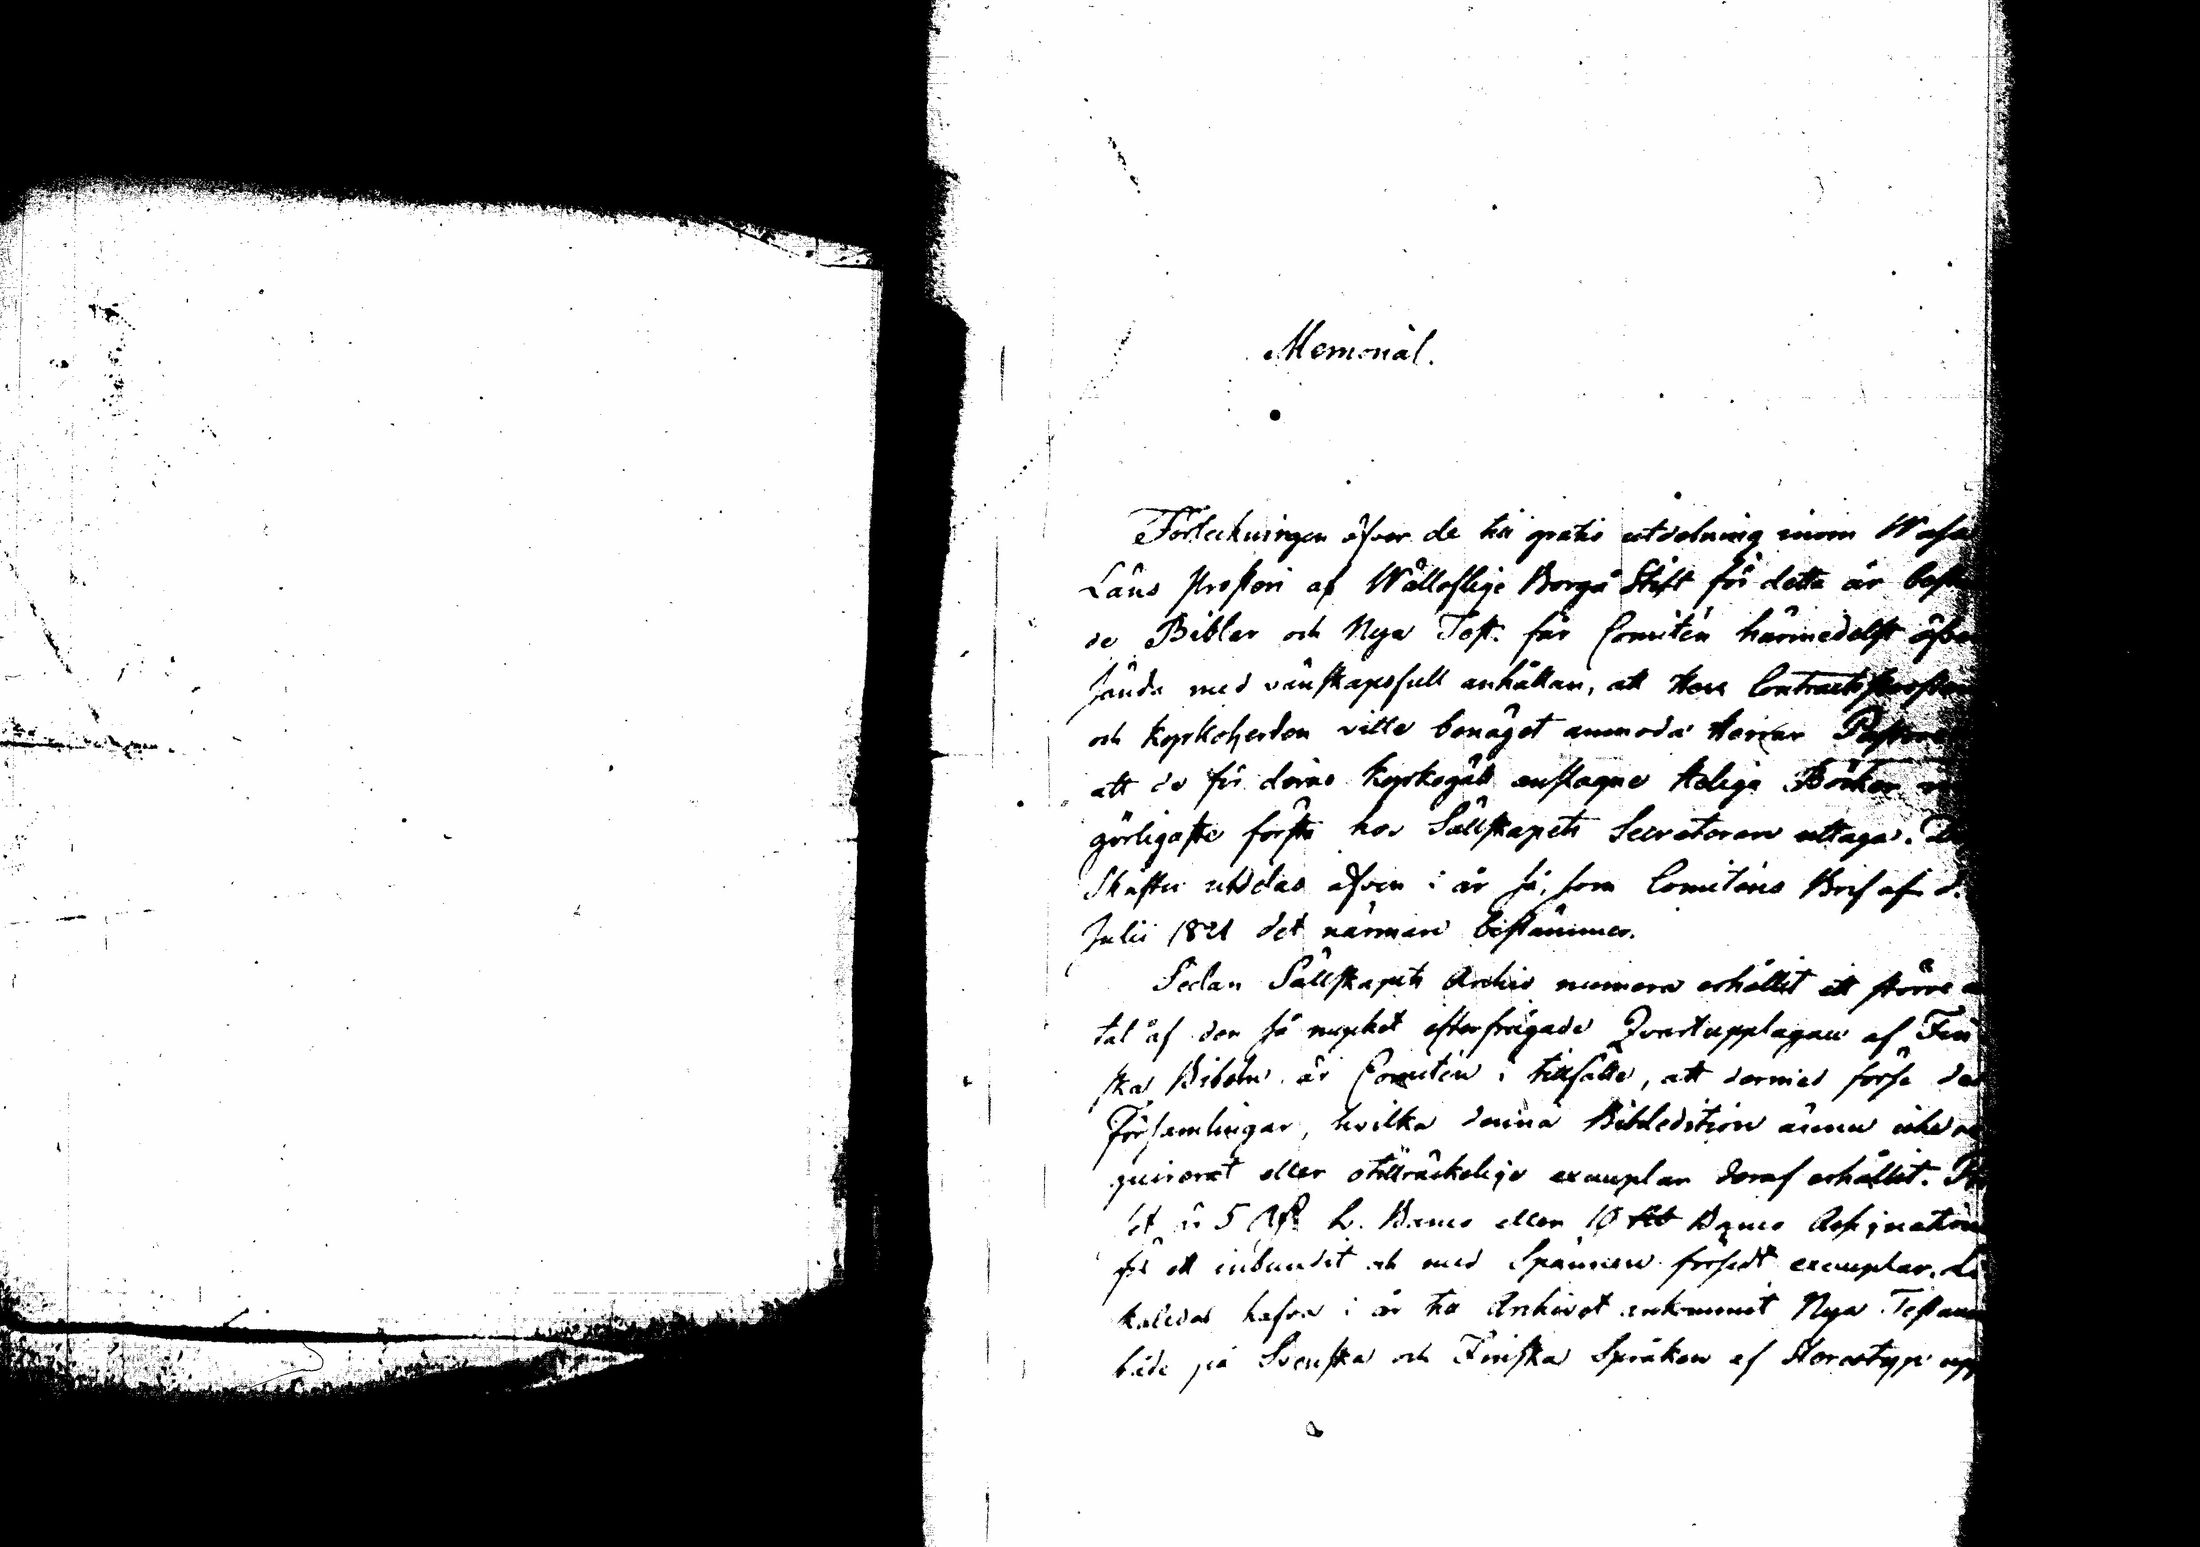 Memorial.
Förteckningen öfver de till gratis utdelning inom Wasa
Läns Prosteri af Wälloflige Borgå Stift för detta år
de Biblar och Nya Test. får Comitén härmedelst öfver
sända med vänskapsfull anhållan, att Herr Contractsprosten
och Kyrkoherden ville benäget anmoda Herrar
att de för deras Kyrkogäll anslagne Heliga Böcker
görligaste första hos Sällskapets Secreterare uttaga.
Skrifter utdelas äfven i år så, som Comiténs Bref af d.
Julii 1821 det närmare bestämmer.
Sedan Sällskapets Archiv numera erhållit ett större
tal af den så mycket efterfrågade Qvartupplagan af Fin
ska Bibeln är Comitén i tillfälle, att dermed förse
Församlingar, hvilka denna Bibledition ännu icke
quirerat eller otillräckelige exemplar deraf erhållit.
är 5 Banco eller Banco Assignation
för ett inbundit och med Spännen försedt exemplar.
kaledes hafva i år till Archivet ankommit Nya
både på Svenska och Finska Språken af Stereotyp